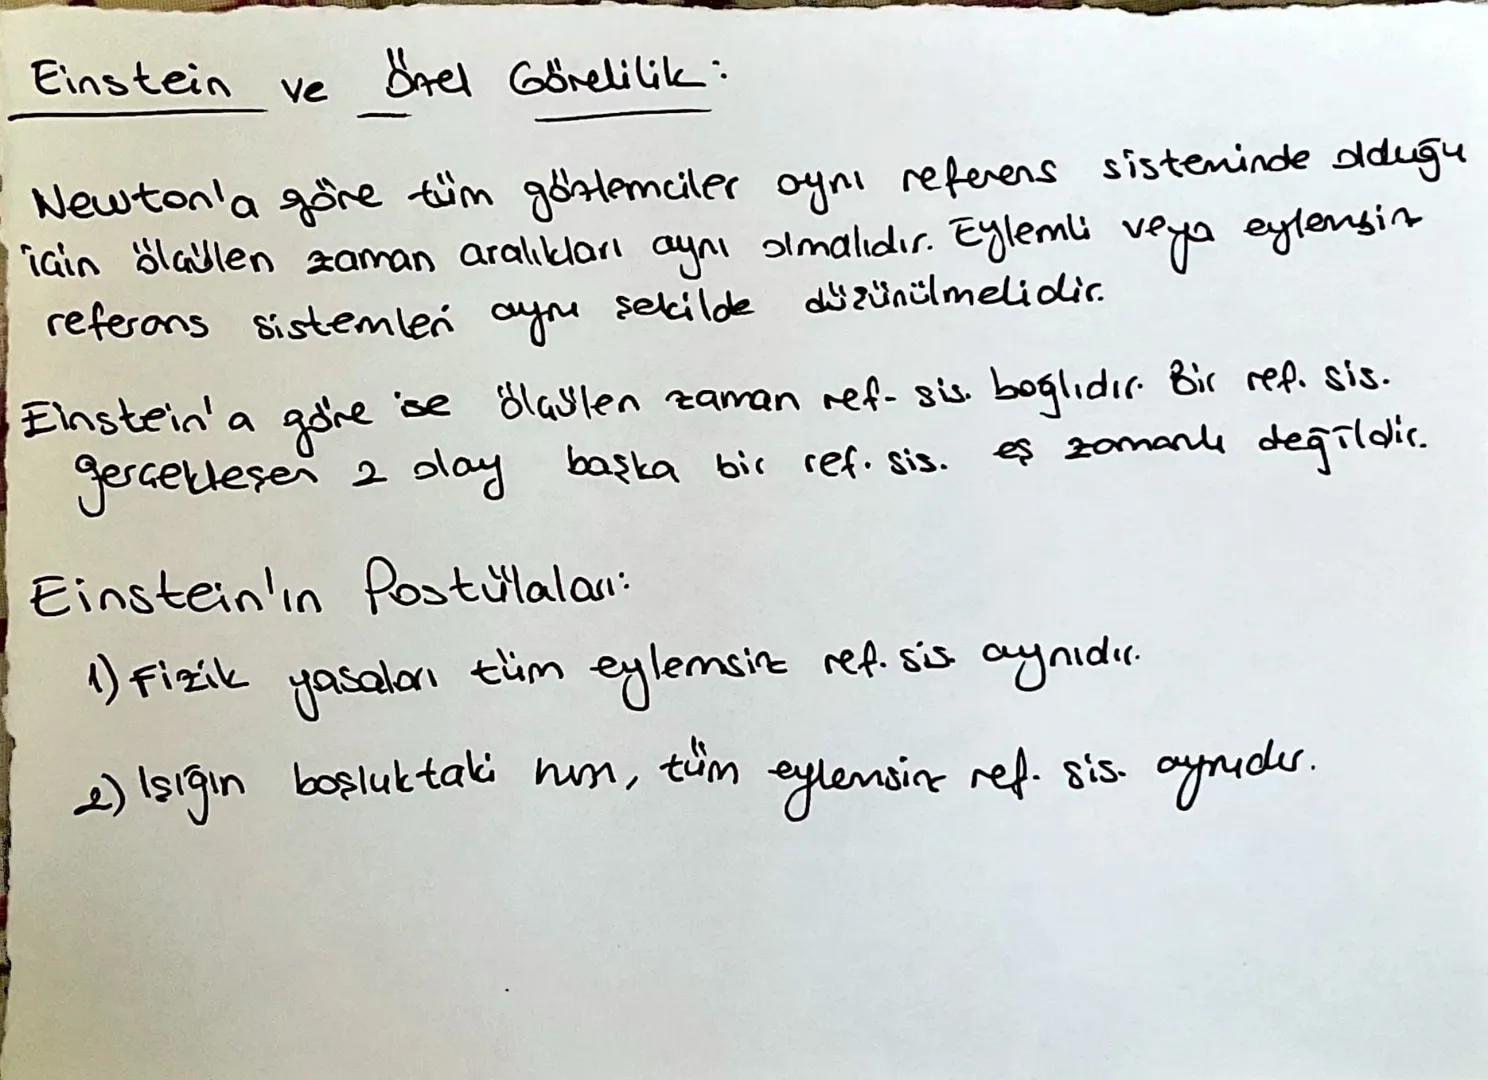 Einstein ve Özel Görelilik:
Newton'a göre tüm gözlemciler aynı referens sisteminde olduğu
için ölçülen zaman aralıkları aynı olmalıdır. Eylemli veya eylemsiz
referans sistemleri aynı şekilde düşünülmelidir.
Einstein'a göre ise ölçülen zaman ref. sis. bağlıdır. Bir ref. sis.
gerçekleşen 2 olay başka bir ref. sis. eş zamanlı değildir.
Einstein'ın Postülaları:
1) Fizik yasaları tüm eylemsiz ref. sis. aynıdır.
2) Işığın boşluktaki hızı, tüm eylemsiz ref. sis. aynıdır.